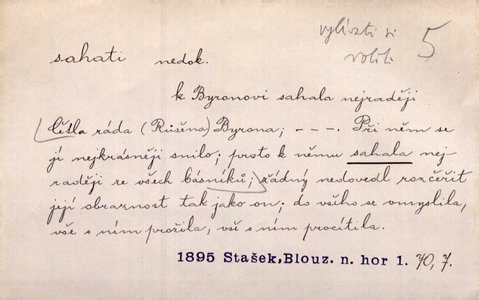 vylízti si 5
voliti
sahati nedok.
k Byronovi sahala nejraději
Četla ráda (Růžena) Byrona; – – –. Při něm se
jí nejkrásněji snilo; proto k němu sahala nej-
raději ze všech básníků; žádný nedovedl rozčeřit
její obraznost tak jako on; do všeho se vmyslila,
vše s ním prožila, vše s ním procítila.
1895 Stašek, Blouz. n. hor 1. 70, 7.